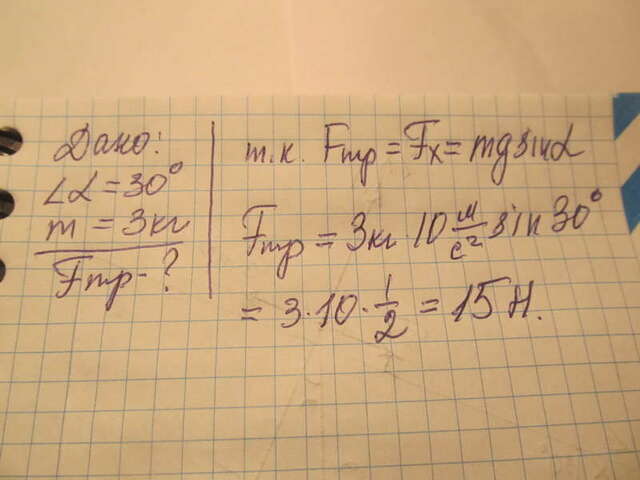 Дано:
∠α = 30°
m = 3кг
Fтр - ?
т.к. Fтр = Fx = mg sin α
Fтр = 3кг 10 м/с² sin 30°
= 3·10·1/2 = 15 Н.